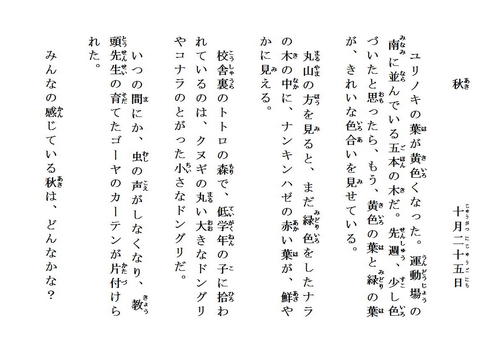 秋
十月二十五日
ユリノキの葉が黄色くなった。運動場の
南に並んでいる五本の木だ。先週、少し色
づいたと思ったら、もう、黄色の葉と緑の葉
が、きれいな色合いを見せている。
丸山の方を見ると、まだ緑色をしたナラ
の木の中に、ナンキンハゼの赤い葉が、鮮や
かに見える。
校舎裏のトトロの森で、低学年の子に拾わ
れているのは、クヌギの丸い大きなドングリ
やコナラのとがった小さなドングリだ。
いつの間にか、虫の声がしなくなり、教
頭先生の育てたゴーヤのカーテンが片付けら
れた。
みんなの感じている秋は、どんなかな？